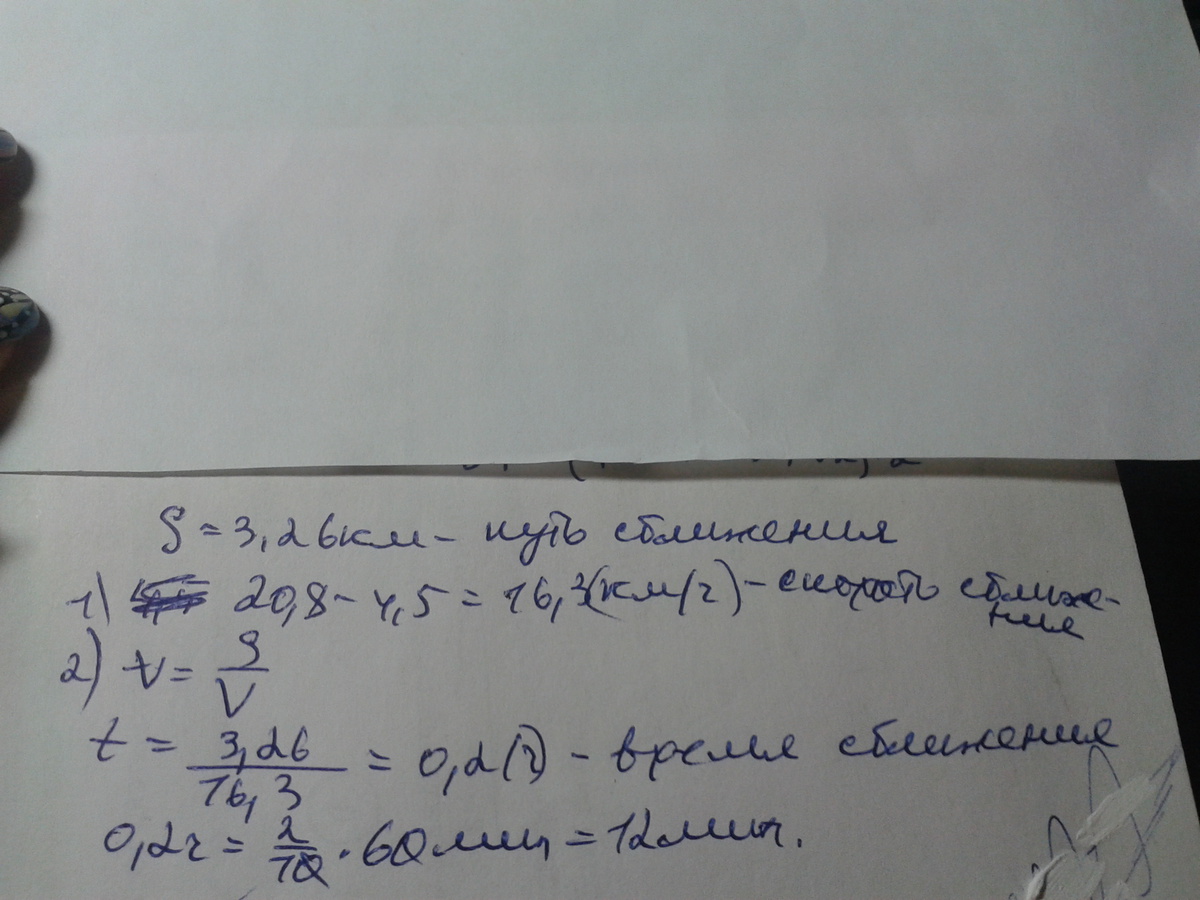 S = 3,26 км - путь сближения
1) 20,8 - 4,5 = 16,3 (км/ч) - скорость сближе-
ния
2) t = S/V
t = 3,26/16,3 = 0,2 (ч) - время сближения
0,2ч = 2/10 · 60 мин = 12 мин.